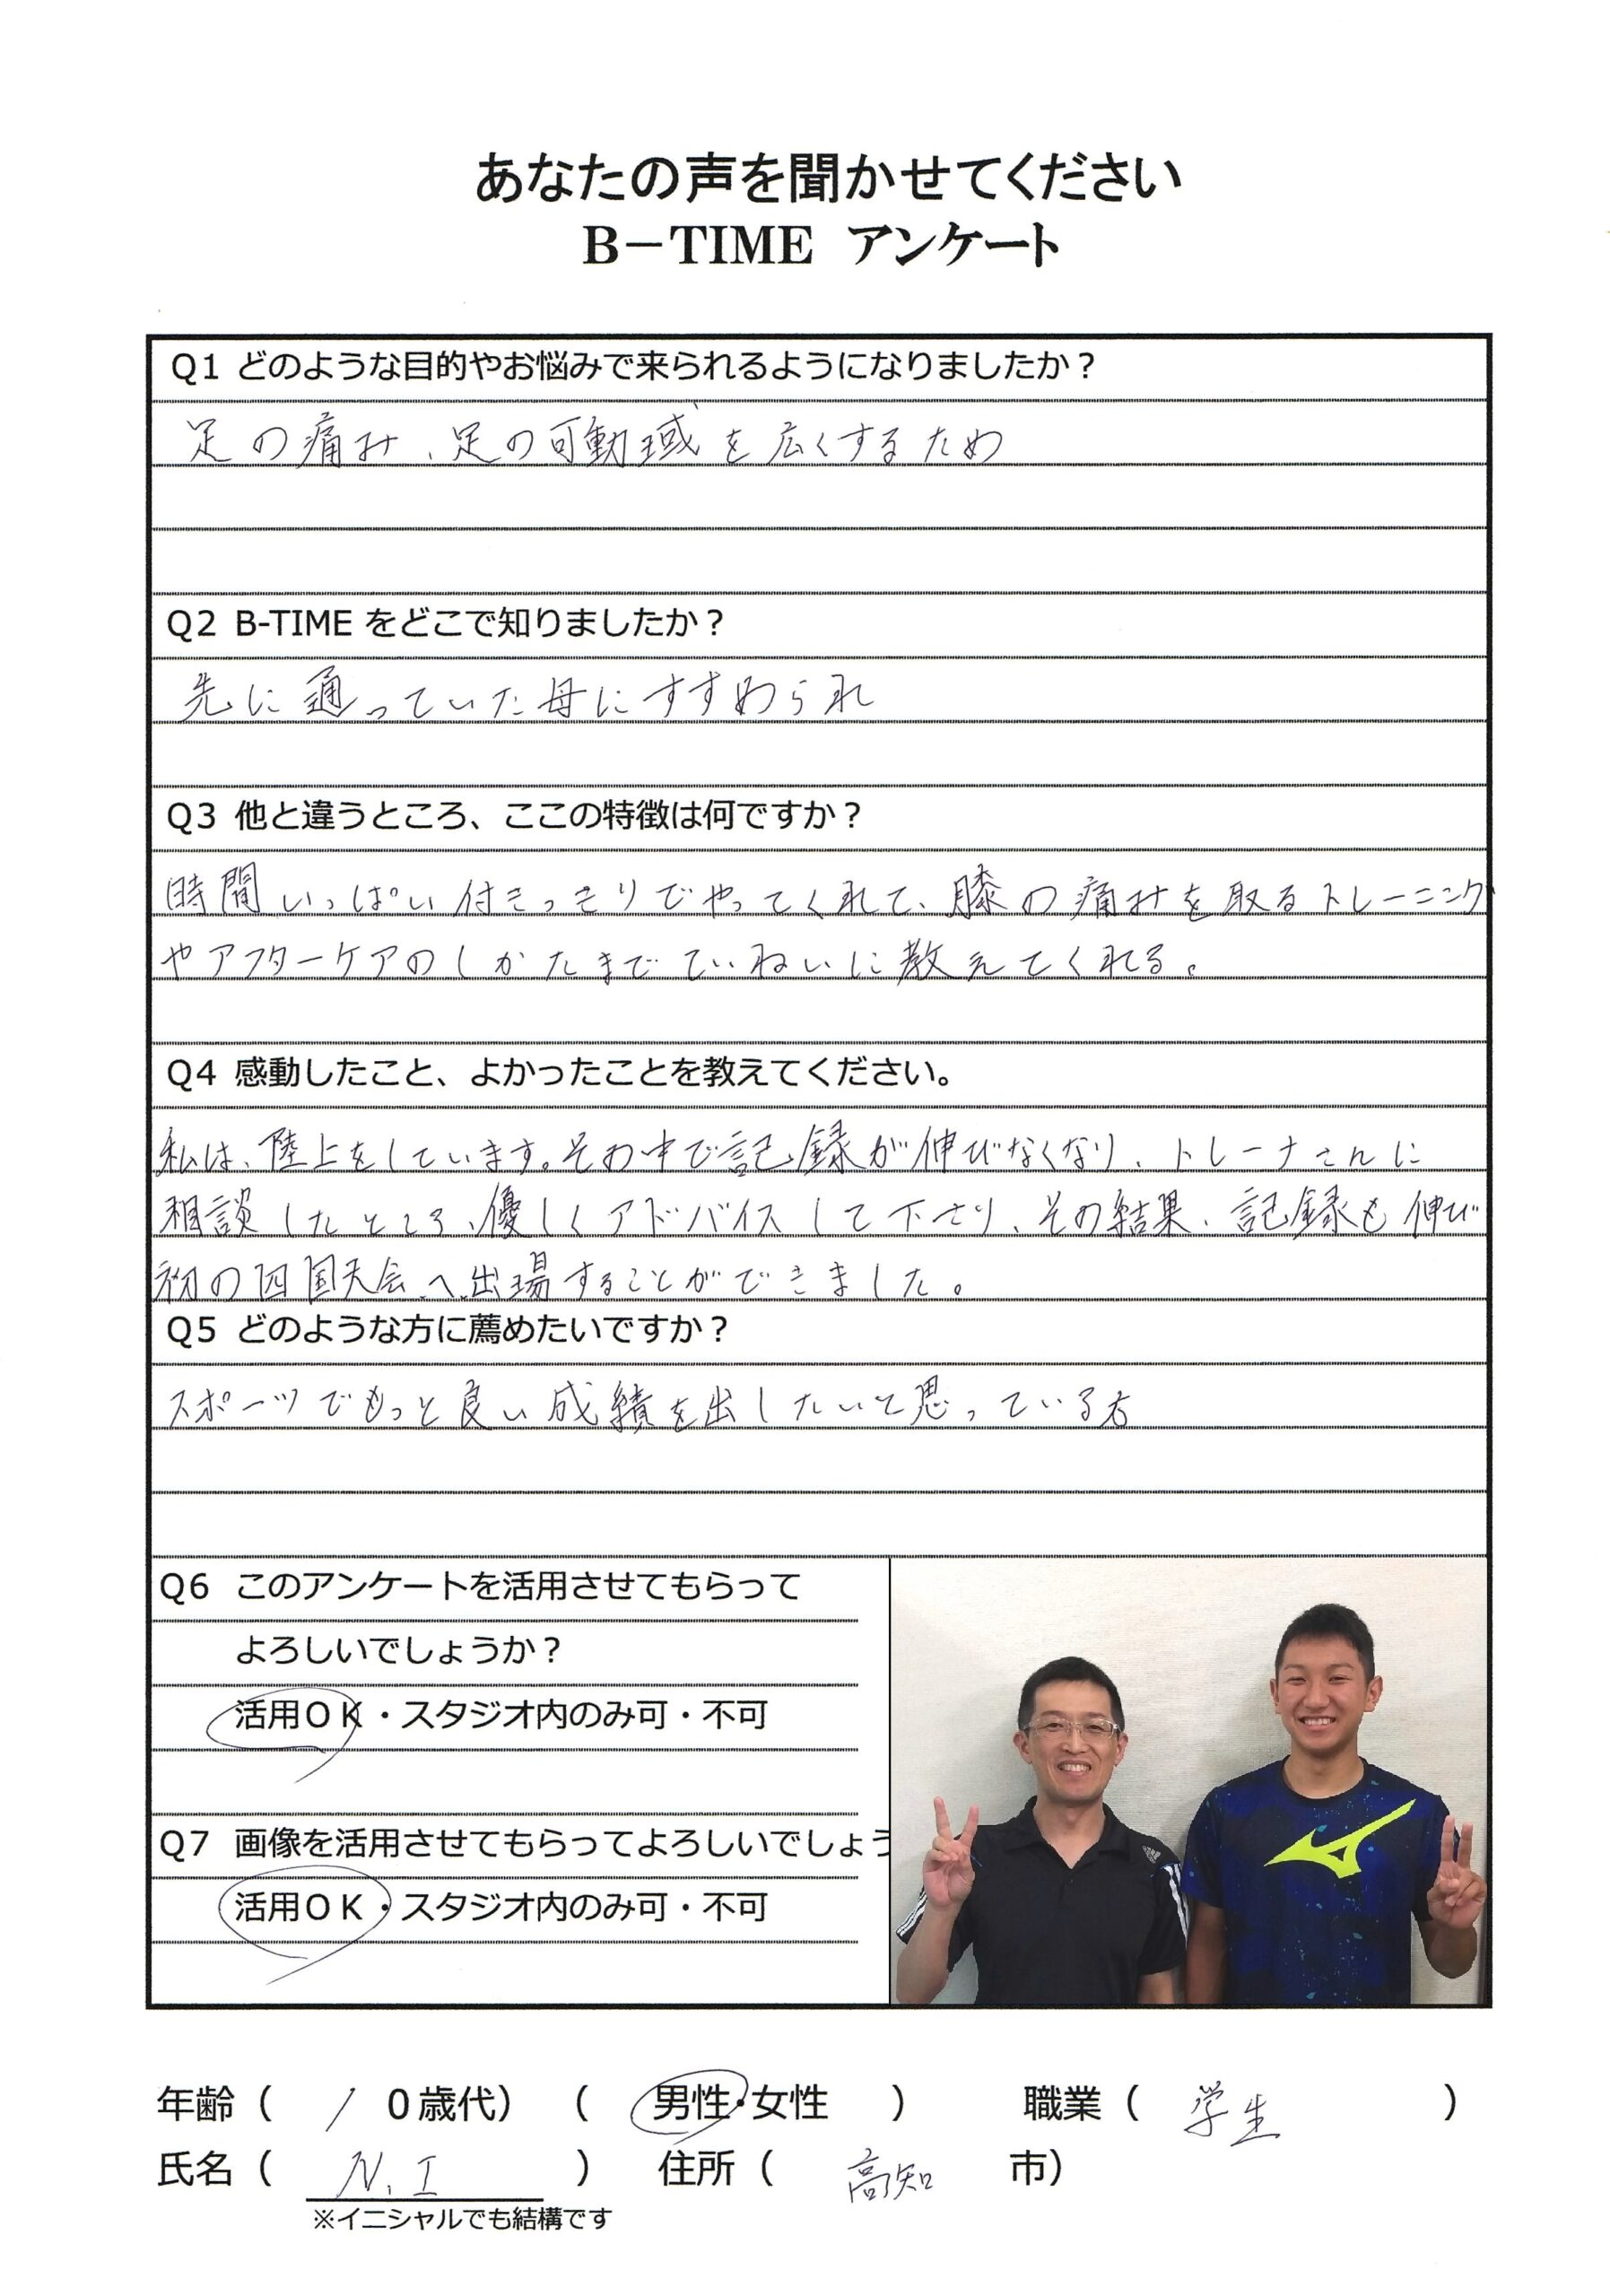 あなたの声を聞かせてください
B－TIME アンケート
Q1 どのような目的やお悩みで来られるようになりましたか？
足の痛み、足の可動域を広くするため
Q2 B-TIME をどこで知りましたか？
先に通っていた母にすすめられ
Q3 他と違うところ、ここの特徴は何ですか？
時間いっぱい付きっきりでやってくれて、膝の痛みを取るトレーニング
やアフターケアのしかたまでていねいに教えてくれる。
Q4 感動したこと、よかったことを教えてください。
私は、陸上をしています。その中で記録が伸びなくなり、トレーナさんに
相談したところ、優しくアドバイスして下さり、その結果、記録も伸び
初の四国大会へ出場することができました。
Q5 どのような方に薦めたいですか？
スポーツでもっと良い成績を出したいと思っている方
Q6 このアンケートを活用させてもらって
よろしいでしょうか？
活用ＯＫ・スタジオ内のみ可・不可
Q7 画像を活用させてもらってよろしいでしょう
活用ＯＫ・スタジオ内のみ可・不可
年齢（ 1 0歳代） （ 男性・女性 ） 職業（ 学生 ）
氏名（ N.I ） 住所（ 高知 市）
※イニシャルでも結構です